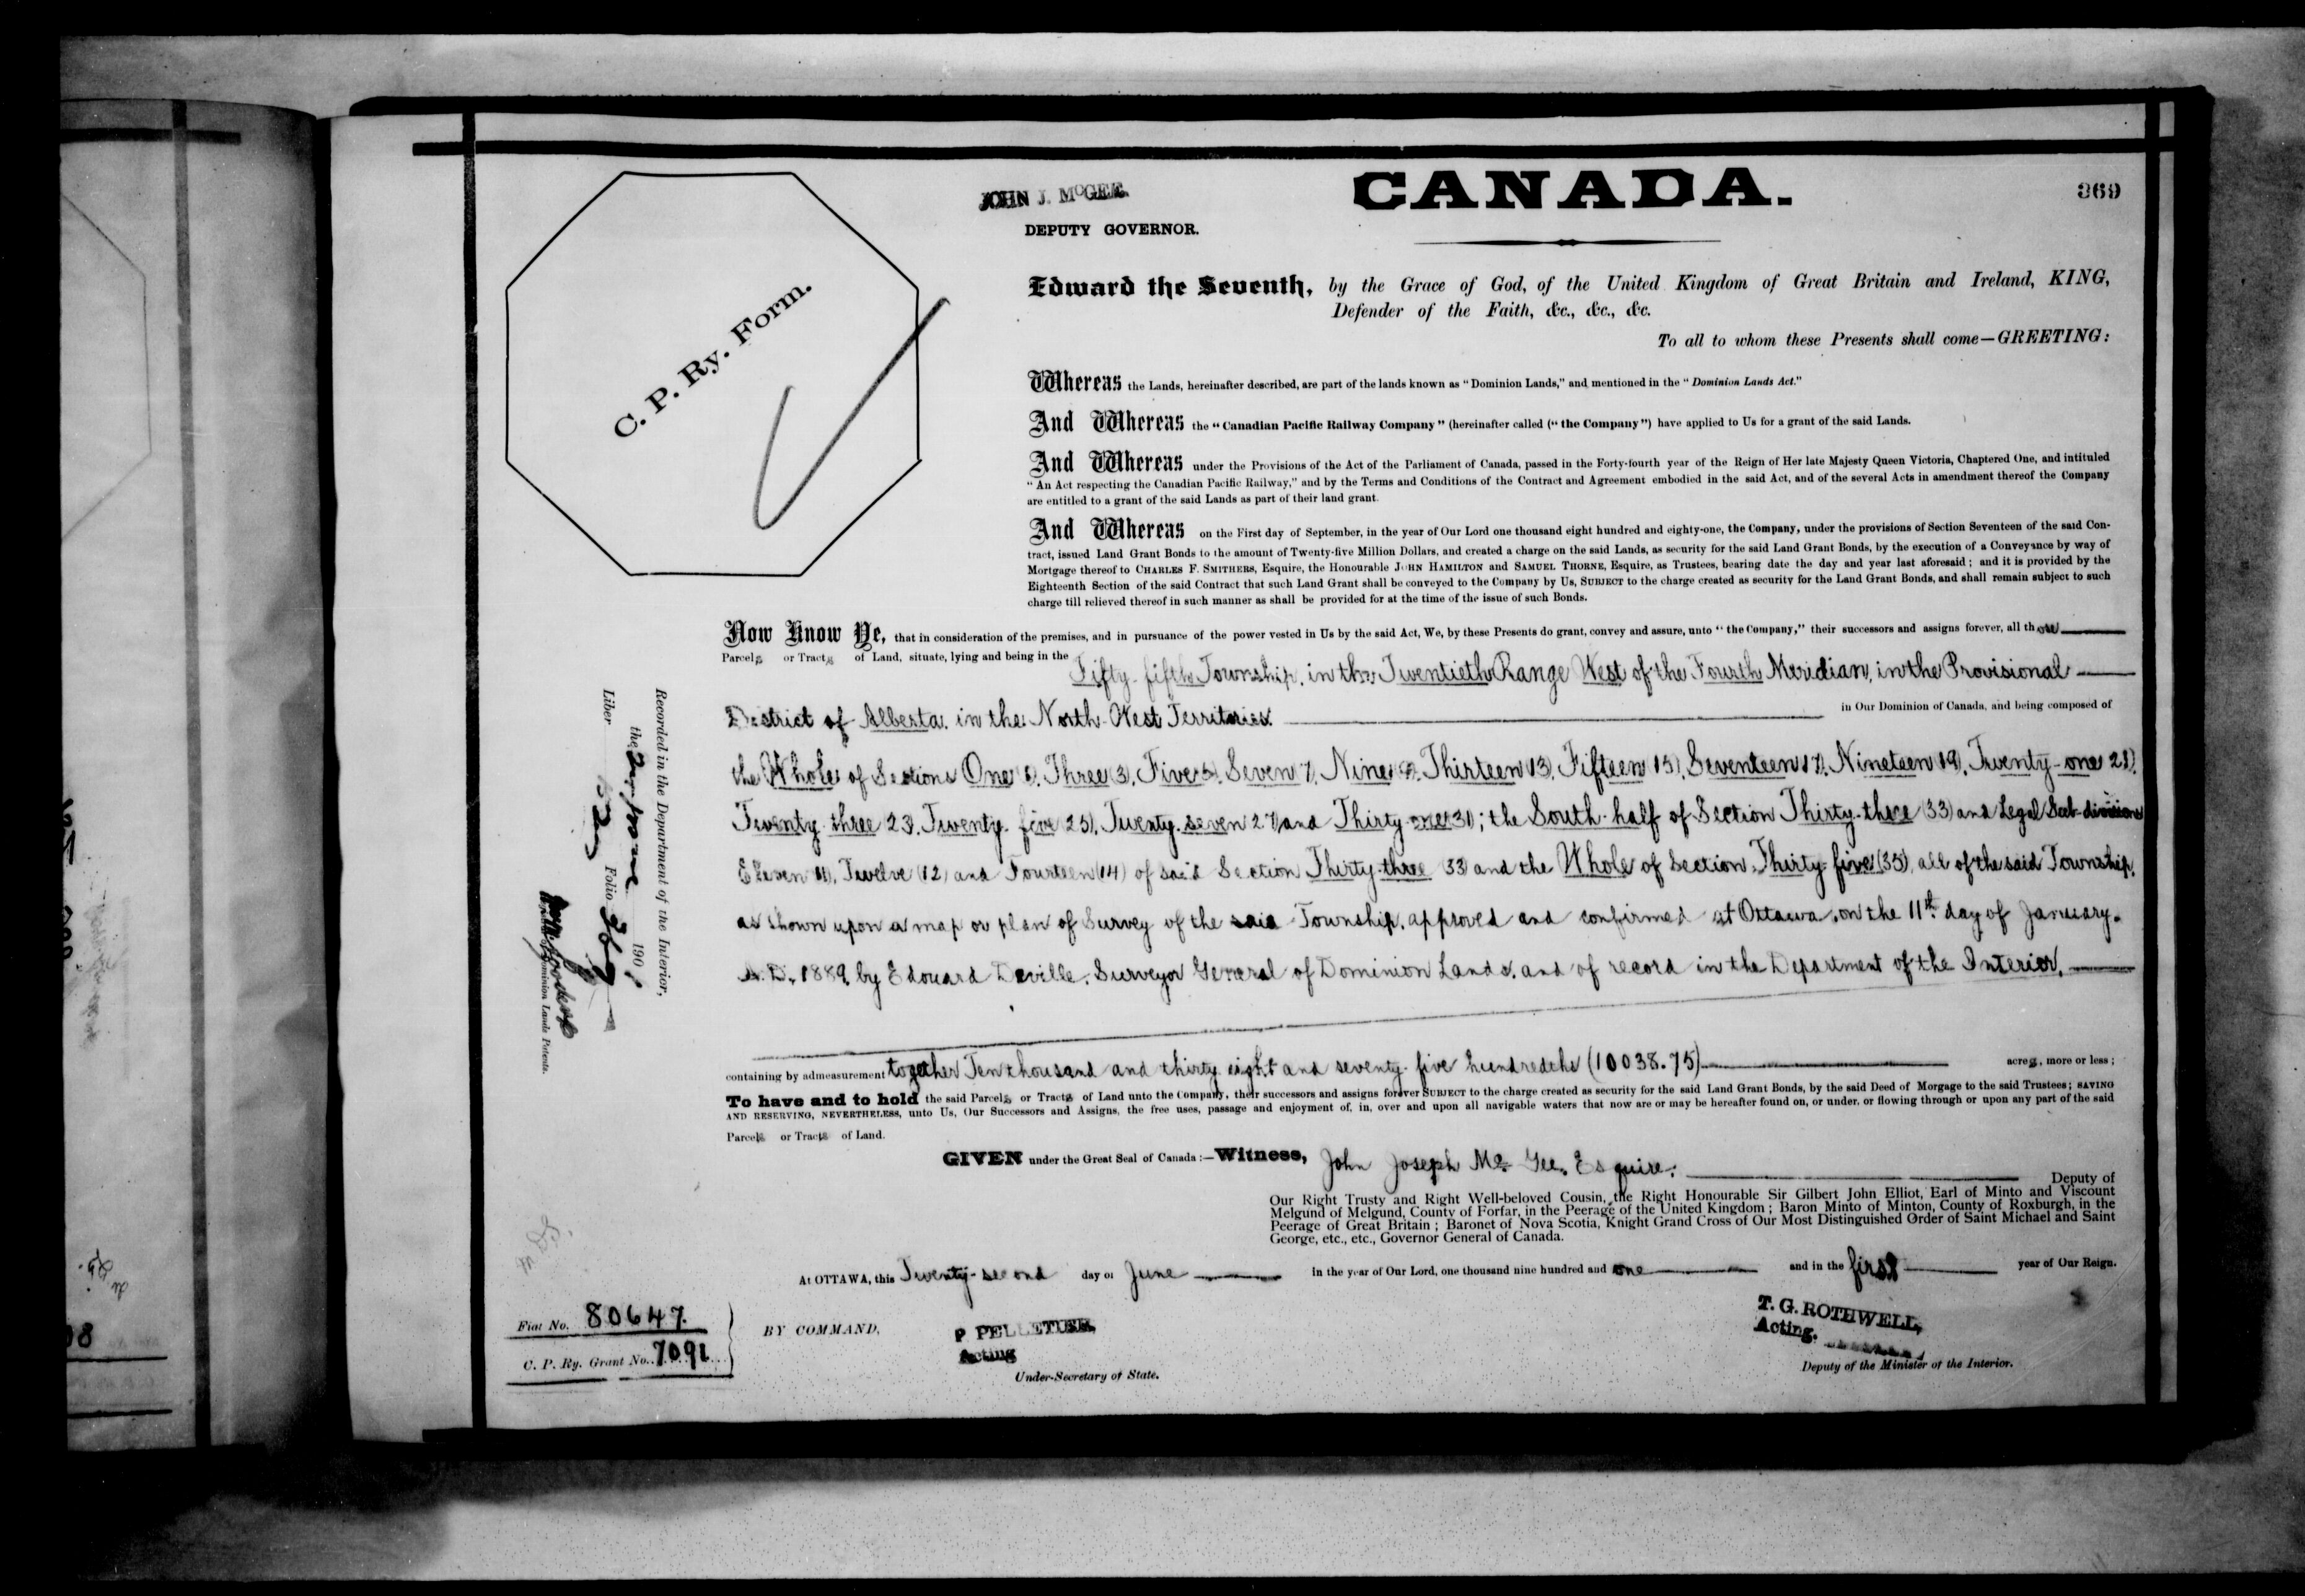 JOHN J. McGEE.
DEPUTY GOVERNOR.
CANADA.
369
C. P. Ry. Form.
Edward the Seventh, by the Grace of God, of the United Kingdom of Great Britain and Ireland, KING,
Defender of the Faith, &c., &c., &c.
To all to whom these Presents shall come—GREETING:
Whereas the Lands, hereinafter described, are part of the lands known as "Dominion Lands," and mentioned in the "Dominion Lands Act."
And Whereas the "Canadian Pacific Railway Company" (hereinafter called ("the Company") have applied to Us for a grant of the said Lands.
And Whereas under the Provisions of the Act of the Parliament of Canada, passed in the Forty-fourth year of the Reign of Her late Majesty Queen Victoria, Chaptered One, and intituled
"An Act respecting the Canadian Pacific Railway," and by the Terms and Conditions of the Contract and Agreement embodied in the said Act, and of the several Acts in amendment thereof the Company
are entitled to a grant of the said Lands as part of their land grant.
And Whereas on the First day of September, in the year of Our Lord one thousand eight hundred and eighty-one, the Company, under the provisions of Section Seventeen of the said Con-
tract, issued Land Grant Bonds to the amount of Twenty-five Million Dollars, and created a charge on the said Lands, as security for the said Land Grant Bonds, by the execution of a Conveyance by way of
Mortgage thereof to CHARLES F. SMITHERS, Esquire, the Honourable JOHN HAMILTON and SAMUEL THORNE, Esquire, as Trustees, bearing date the day and year last aforesaid; and it is provided by the
Eighteenth Section of the said Contract that such Land Grant shall be conveyed to the Company by Us, SUBJECT to the charge created as security for the Land Grant Bonds, and shall remain subject to such
charge till relieved thereof in such manner as shall be provided for at the time of the issue of such Bonds.
Now Know Ye, that in consideration of the premises, and in pursuance of the power vested in Us by the said Act, We, by these Presents do grant, convey and assure, unto "the Company," their successors and assigns forever, all those
Parcels or Tracts of Land, situate, lying and being in the Fifty-fifth Township, in the Twentieth Range West of the Fourth Meridian, in the Provisional
District of Alberta, in the North-West Territories in our Dominion of Canada, and being composed of
the Whole of Sections One (1), Three (3), Five (5), Seven (7), Nine (9), Thirteen (13), Fifteen (15), Seventeen (17), Nineteen (19), Twenty-one (21),
Twenty-three (23), Twenty-five (25), Twenty-seven (27) and Thirty-one (31); the South-half of Section Thirty-three (33) and Legal Sub-divisions
Eleven (11), Twelve (12) and Fourteen (14) of said Section Thirty-three (33) and the Whole of Section Thirty-five (35), all of the said Township,
as shown upon a map or plan of Survey of the said Township, approved and confirmed at Ottawa, on the 11th day of January,
A.D. 1889, by Edouard Deville, Surveyor General of Dominion Lands, and of record in the Department of the Interior.
containing by admeasurement together Ten thousand and thirty eight and seventy-five hundredths (10038.75) acres, more or less;
To have and to hold the said Parcels or Tracts of Land unto the Company, their successors and assigns forever SUBJECT to the charge created as security for the said Land Grant Bonds, by the said Deed of Morgage to the said Trustees; SAVING
AND RESERVING, NEVERTHELESS, unto Us, Our Successors and Assigns, the free uses, passage and enjoyment of, in, over and upon all navigable waters that now are or may be hereafter found on, or under, or flowing through or upon any part of the said
Parcels or Tracts of Land.
GIVEN under the Great Seal of Canada:—Witness, John Joseph McGee, Esquire, Deputy of
Our Right Trusty and Right Well-beloved Cousin, the Right Honourable Sir Gilbert John Elliot, Earl of Minto and Viscount
Melgund of Melgund, County of Forfar, in the Peerage of the United Kingdom; Baron Minto of Minton, County of Roxburgh, in the
Peerage of Great Britain; Baronet of Nova Scotia, Knight Grand Cross of Our Most Distinguished Order of Saint Michael and Saint
George, etc., etc., Governor General of Canada.
At OTTAWA, this Twenty-second day of June in the year of Our Lord, one thousand nine hundred and one and in the first year of Our Reign.
BY COMMAND,
P PELLETIER,
Acting
Under-Secretary of State.
T. G. ROTHWELL,
Acting.
Deputy of the Minister of the Interior.
Fiat No. 80647.
C. P. Ry. Grant No. 7091
Recorded in the Department of the Interior,
the 1901
Liber Folio 369
Dominion Lands Patents.